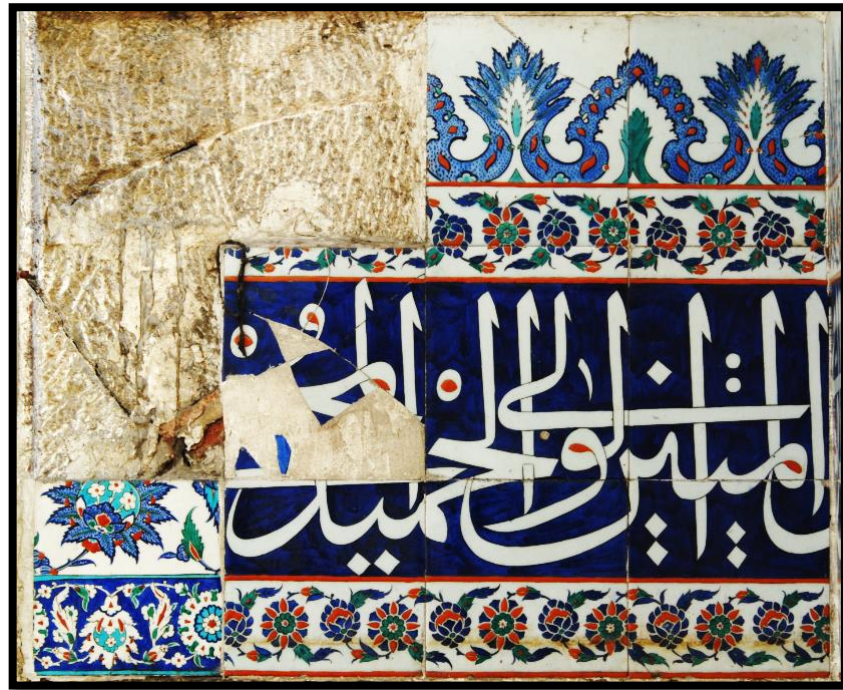 المتين الولي الحميد